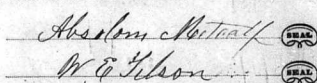 Absolom Metcalf SEAL
W. E. Tilson SEAL